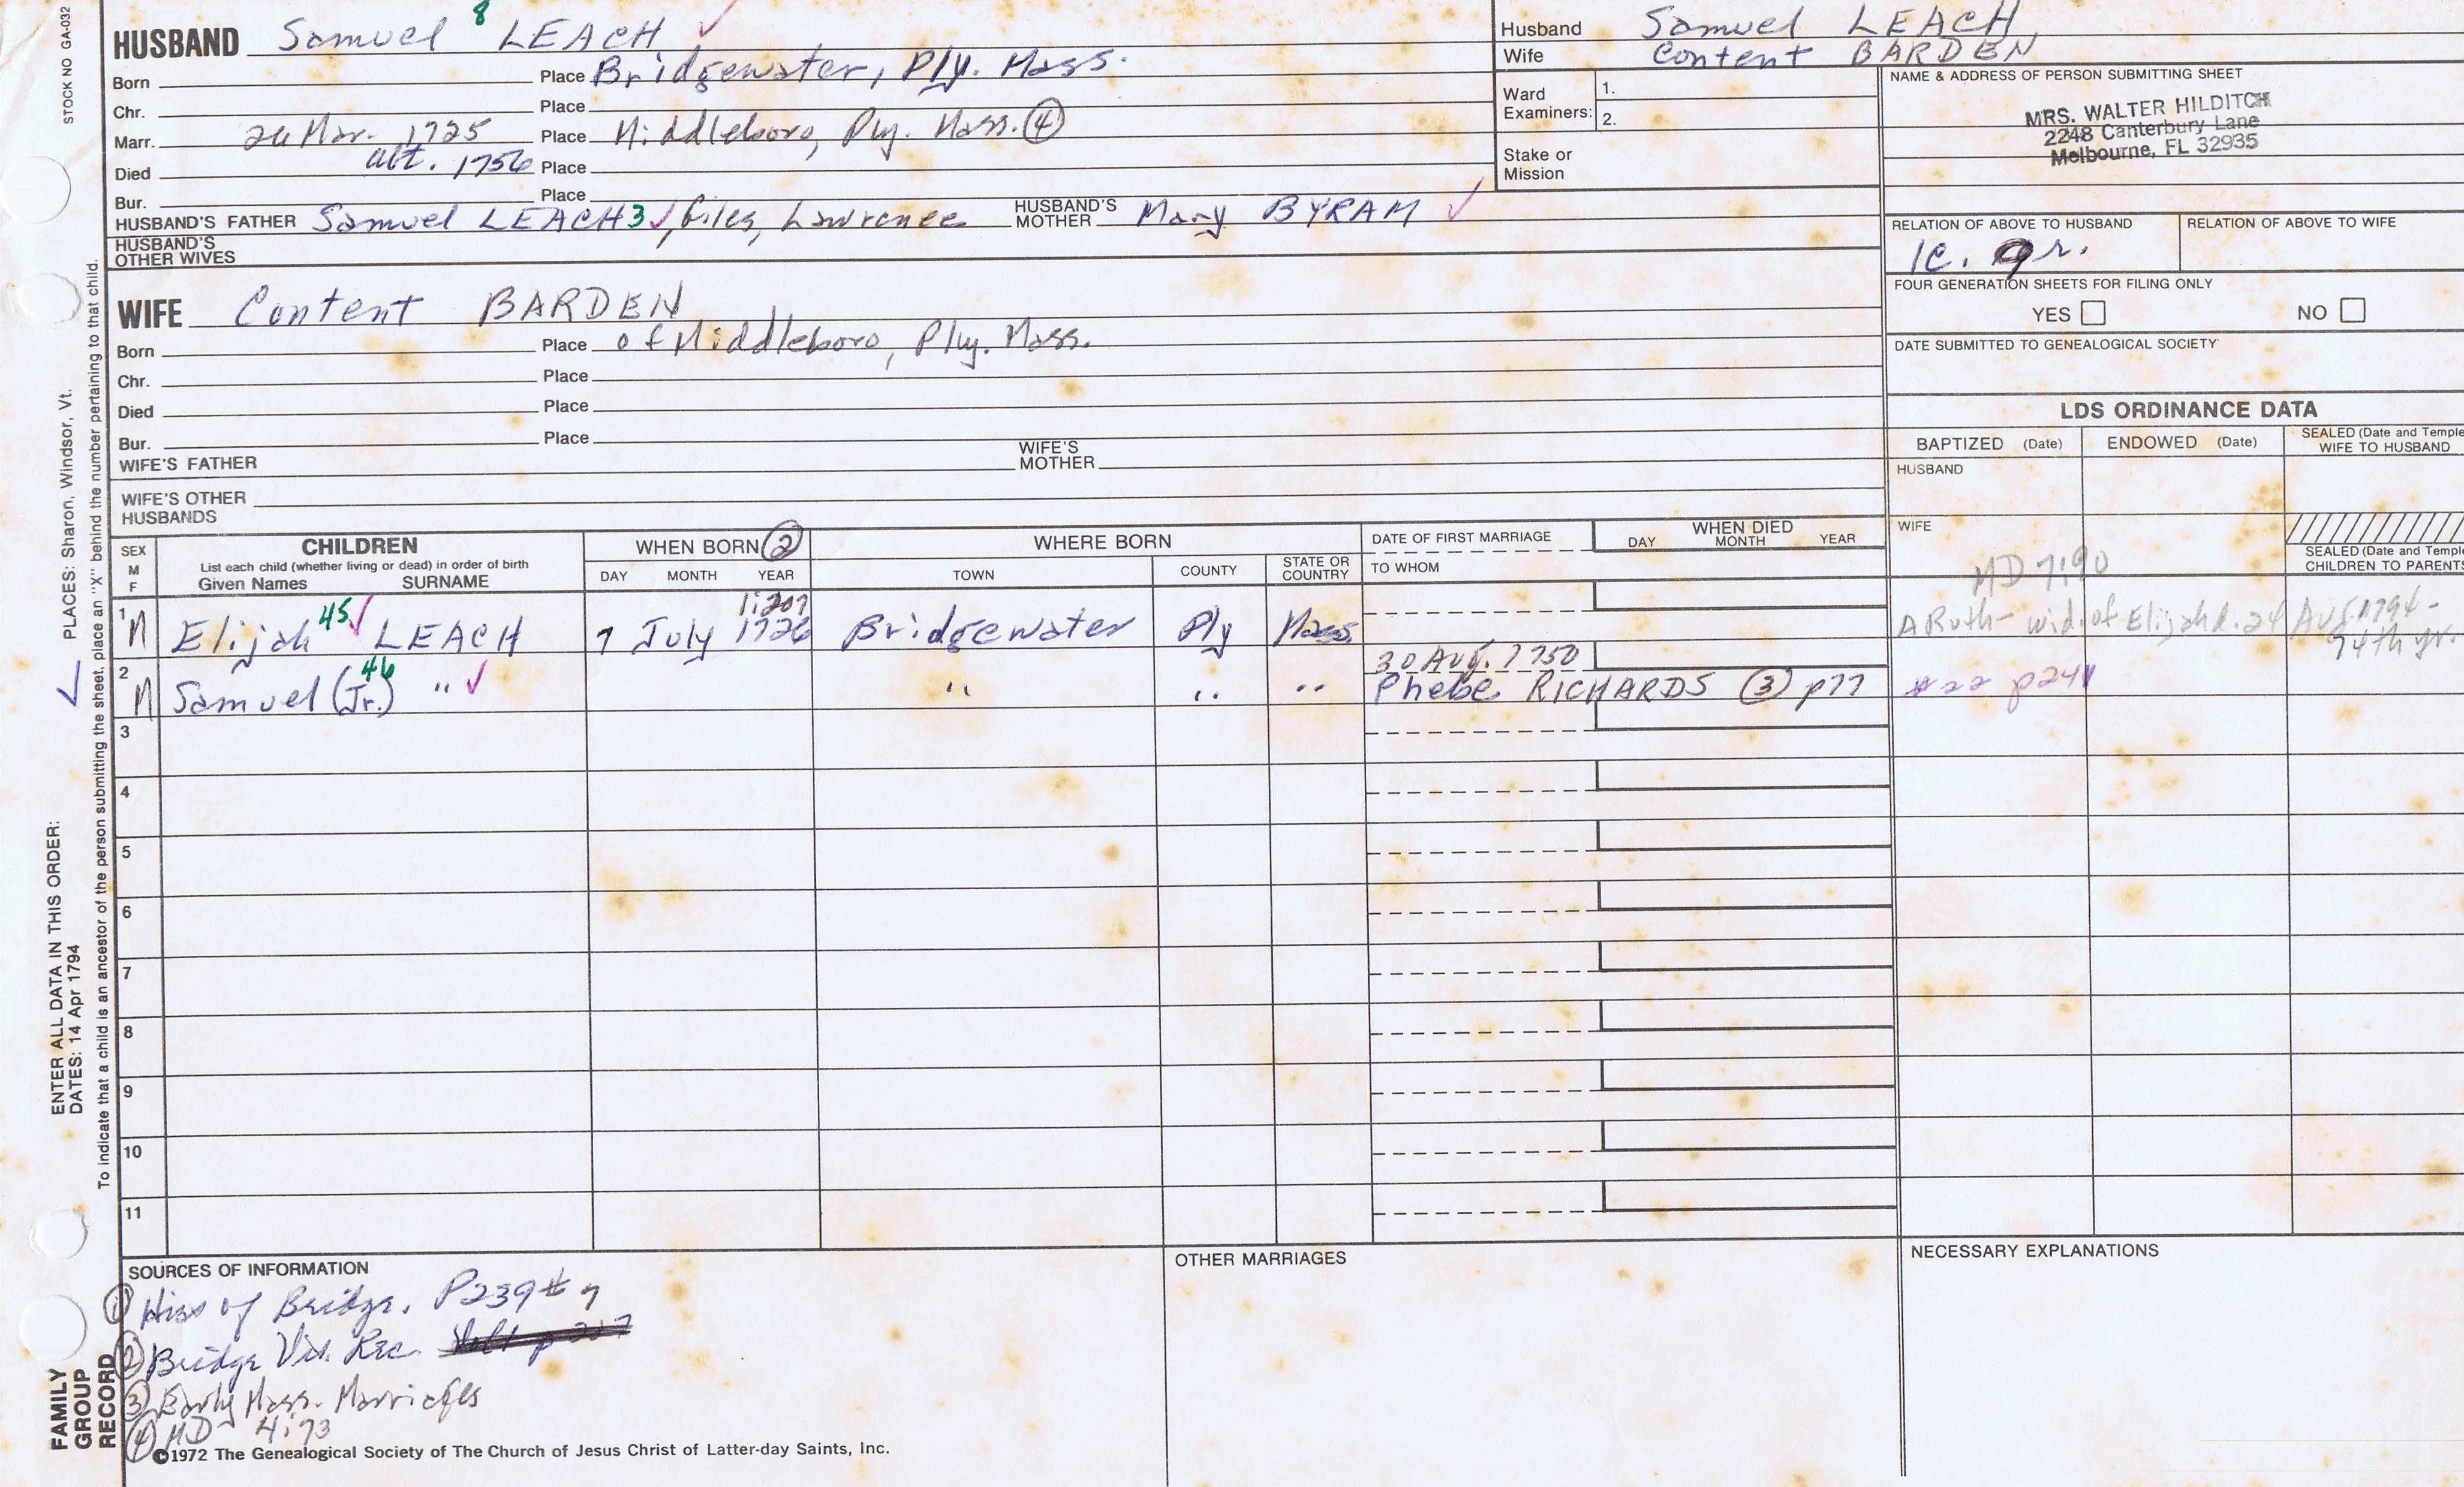 STOCK NO GA-032
HUSBAND Samuel 8 LEACH ✓
Born Place Bridgewater, Ply. Mass.
Chr. Place
Marr. 24 Mar. 1725 Place Middleboro, Ply. Mass. (4)
Died aft. 1756 Place
Bur. Place
HUSBAND'S FATHER Samuel LEACH 3 ✓, Giles, Lawrence HUSBAND'S MOTHER Mary BYRAM ✓
HUSBAND'S OTHER WIVES
WIFE Content BARDEN
Born Place of Middleboro, Ply. Mass.
Chr. Place
Died Place
Bur. Place
WIFE'S FATHER WIFE'S MOTHER
WIFE'S OTHER HUSBANDS
Husband Samuel LEACH
Wife Content BARDEN
Ward Examiners: 1.
2.
Stake or Mission
NAME & ADDRESS OF PERSON SUBMITTING SHEET
MRS. WALTER HILDITCH
2248 Canterbury Lane
Melbourne, FL 32935
RELATION OF ABOVE TO HUSBAND RELATION OF ABOVE TO WIFE
1c. gr.
FOUR GENERATION SHEETS FOR FILING ONLY
YES NO
DATE SUBMITTED TO GENEALOGICAL SOCIETY
LDS ORDINANCE DATA
BAPTIZED (Date) ENDOWED (Date) SEALED (Date and Temple) WIFE TO HUSBAND
HUSBAND
WIFE
SEALED (Date and Temple) CHILDREN TO PARENTS
SEX M F
CHILDREN
List each child (whether living or dead) in order of birth
Given Names SURNAME
WHEN BORN (2)
DAY MONTH YEAR
WHERE BORN
TOWN COUNTY STATE OR COUNTRY
DATE OF FIRST MARRIAGE
TO WHOM
WHEN DIED
DAY MONTH YEAR
MD 7:90
1 M Elijah 45 ✓ LEACH 7 July 1726 1:207 Bridgewater Ply Mass
A Ruth - wid. of Elijah d. 24 Aug. 1794 -
74th yr.
2 M Samuel (Jr.) 46 " ✓ " " " 30 Aug. 1750
Phebe RICHARDS (3) p77 #22 p241
3
4
5
6
7
8
9
10
11
SOURCES OF INFORMATION
(1) Hiss of Bridge. P239 # 7
(2) Bridge Vit. Rec.
(3) Early Mass. Marriages
(4) MD 4:73
OTHER MARRIAGES
NECESSARY EXPLANATIONS
©1972 The Genealogical Society of The Church of Jesus Christ of Latter-day Saints, Inc.
FAMILY GROUP RECORD
ENTER ALL DATA IN THIS ORDER:
DATES: 14 Apr 1794
PLACES: Sharon, Windsor, Vt.
To indicate that a child is an ancestor of the person submitting the sheet, place an "X" behind the number pertaining to that child.